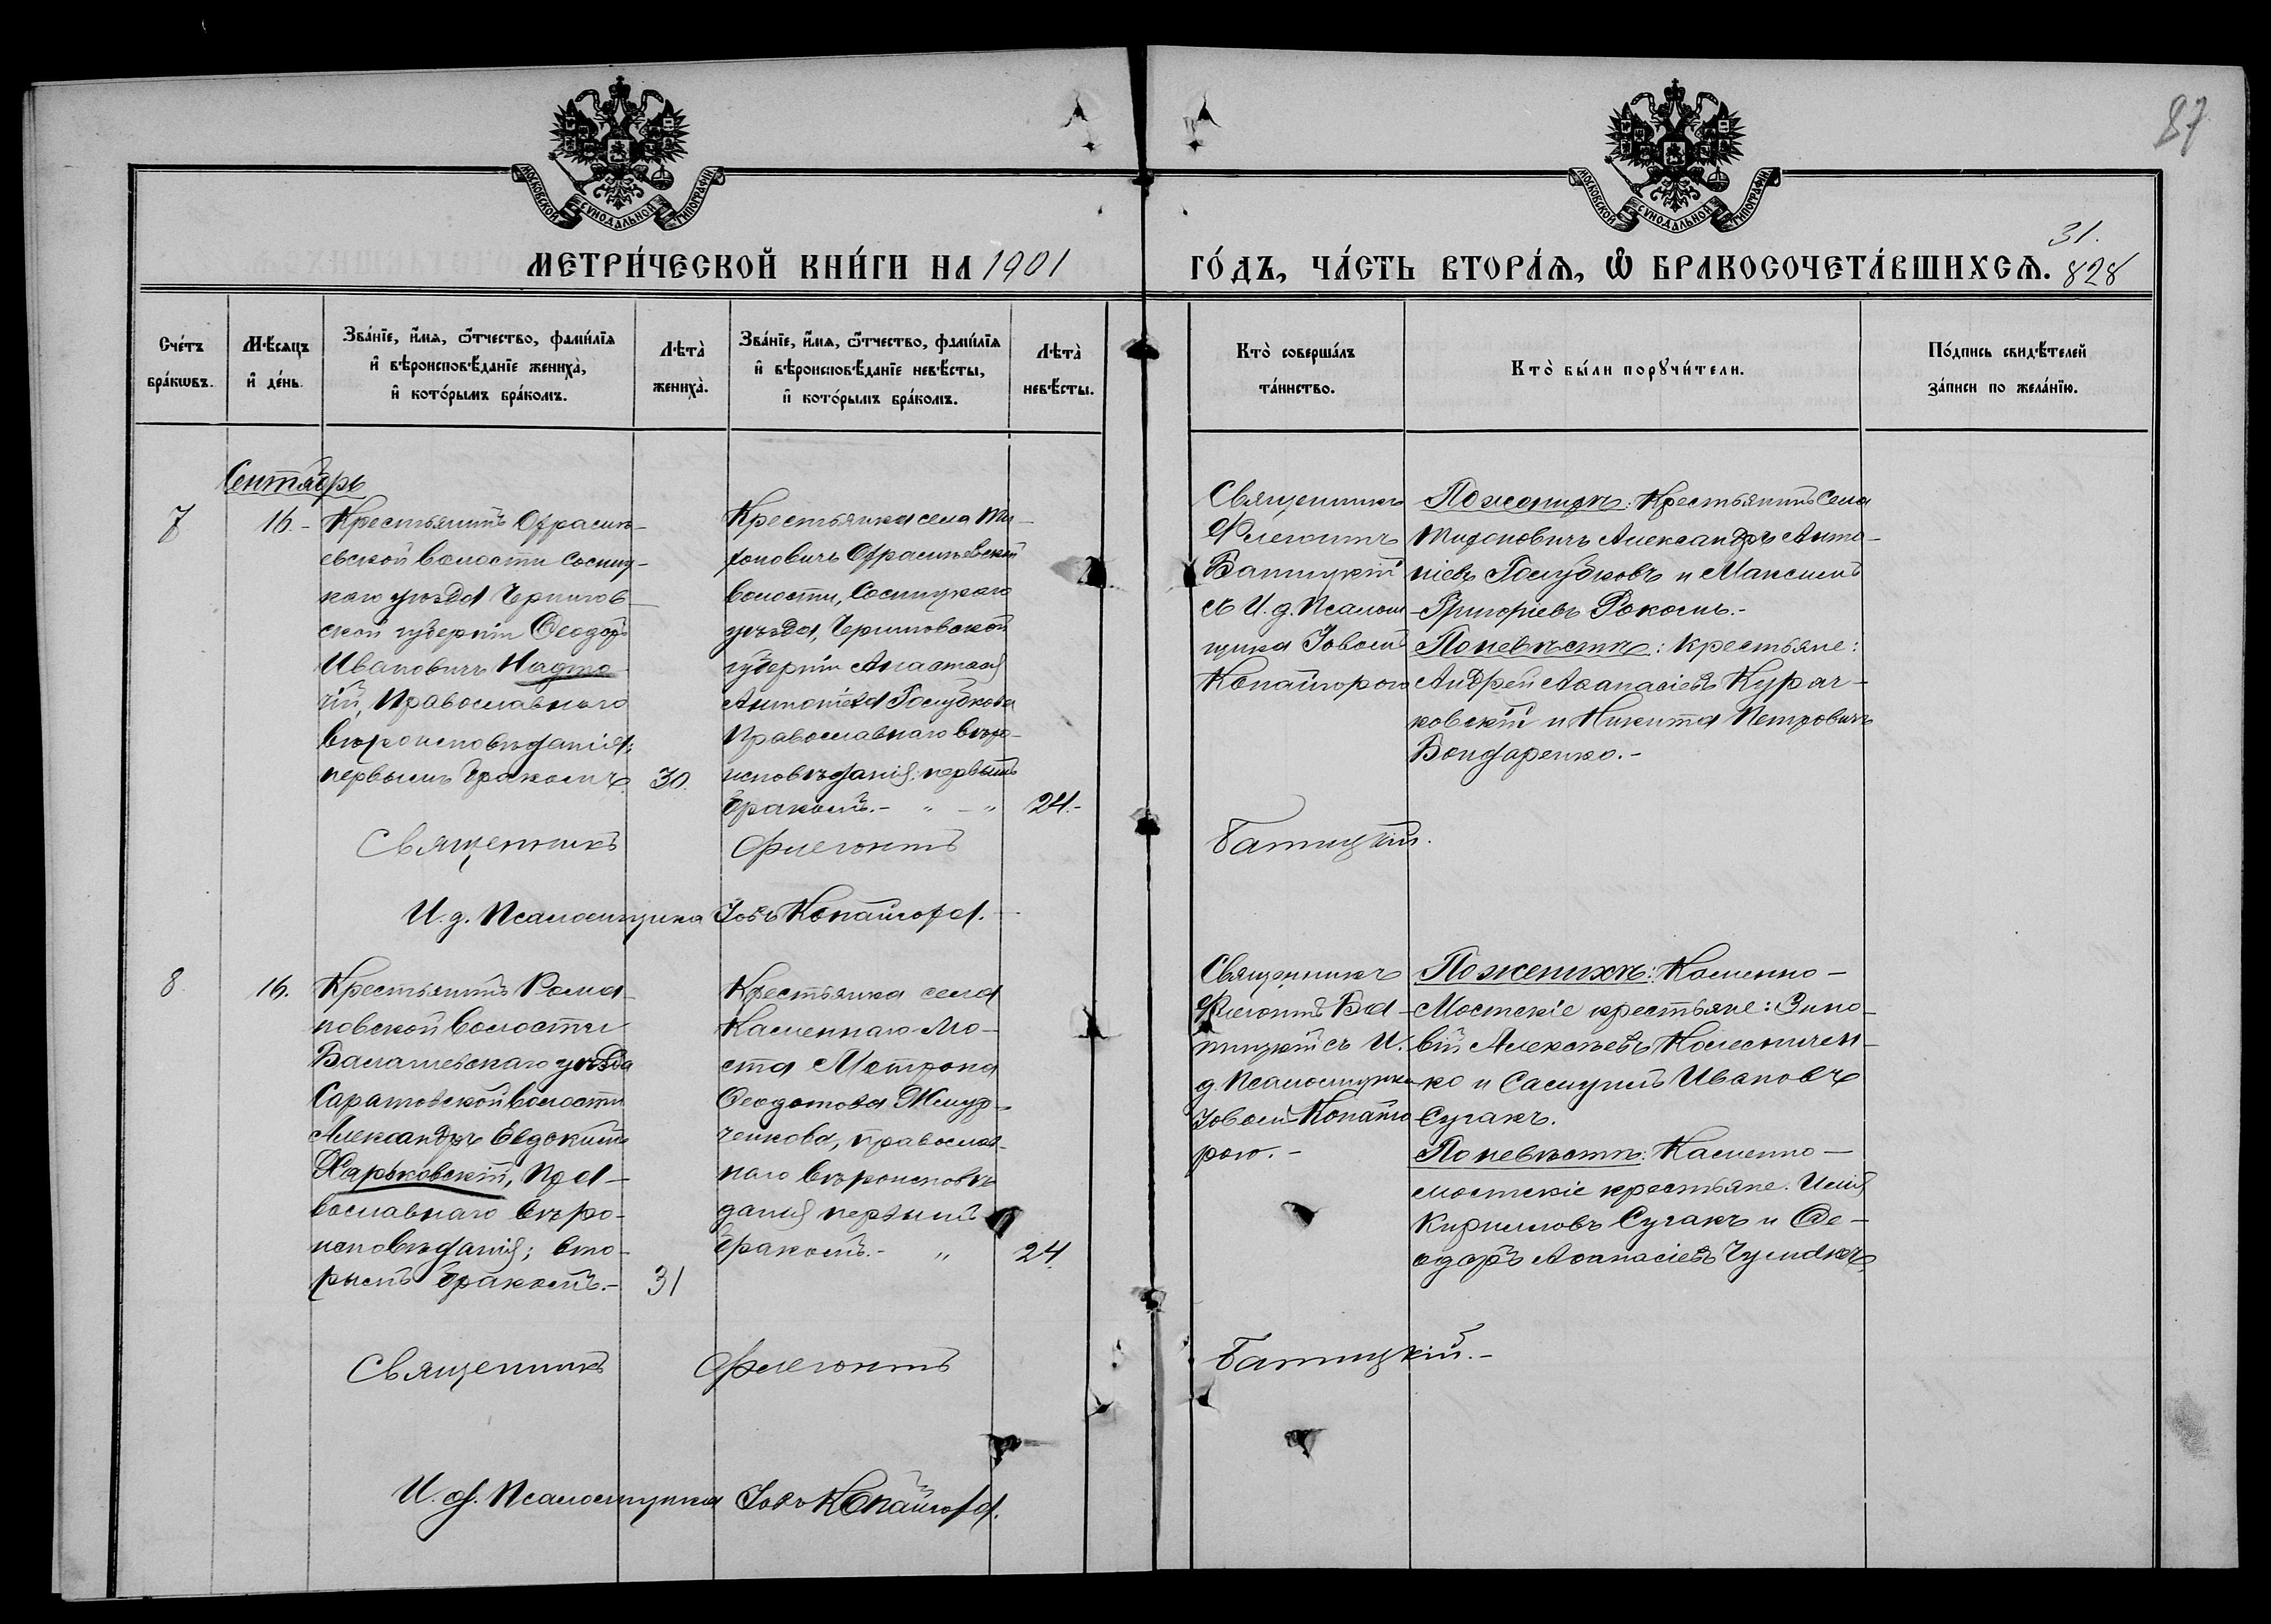 87
МОСКОВСКОЙ СѴНОДАЛЬНОЙ ТИПОГРАФІИ
МОСКОВСКОЙ СѴНОДАЛЬНОЙ ТИПОГРАФІИ
МЕТРИ́ЧЕСКОЙ КНИ́ГИ НА 1901
ГО́ДЪ, ЧА́СТЬ ВТОРА́Ѧ, Ѽ БРАКОСОЧЕТА́ВШИХСѦ.
31.
828
Сче́тъ
бра́кѡвъ.
Мѣ́сяцъ
и҆ де́нь.
Зва́нїе, и҆́мѧ, ѻ҆́тчество, фами́лїѧ
и҆ вѣроисповѣ́данїе жениха̀,
и҆ кото́рымъ бра́комъ.
Лѣта̀
жениха̀.
Зва́нїе, и҆́мѧ, ѻ҆́тчество, фами́лїѧ
и҆ вѣроисповѣ́данїе невѣ́сты,
и҆ кото́рымъ бра́комъ.
Лѣта̀
невѣ́сты.
Кто̀ соверша́лъ
та́инство.
Кто̀ бы́ли порꙋчи́тели.
По́дпись свидѣ́телей
за́писи по жела́нїю.
Сентябрь
7
16.-
Крестьянинъ
евской волости Сосниц-
каго уѣзда Чернигов-
ской губерніи Ѳеодоръ
Ивановичъ Надто-
чій, Православнаго
вѣроисповѣданія;
первымъ бракомъ
30.
Крестьянка села Ти-
хоновичъ
волости, Сосницкаго
уѣзда, Черниговской
губерніи Анастасія
Антоніева Голубкова
Православнаго вѣро-
исповѣданія; первымъ
бракомъ.- „ - „
24.-
Священникъ
Флегонтъ
Ватицкій
съ И. д. Псаломщика
Іовомъ
Копайгорою
По женихѣ: Крестьянинъ села
Тихоновичъ Александръ Анто-
ніевъ Голубковъ и Максимъ
Григоріевъ Рокосъ.-
По невѣстѣ: крестьяне:
Андрей Аѳанасіевъ Курач-
ковскій и Никита Петровичъ
Бондаренко.-
Священникъ Флегонтъ Батицкій.
И. д. Псаломщика Іовъ Копайгора.-
8.
16.
Крестьянинъ Рома-
новской волости
Балашевскаго уѣзда
Саратовской волости
Александръ Евдокимъ
Харьковскій, Пра-
вославнаго вѣро-
исповѣданія; вто-
рымъ бракомъ.-
31
Крестьянка села
Каменнаго-Мо-
ста Матрона
Ѳеодотова Жмур-
ченкова, православ-
наго вѣроисповѣ-
данія первымъ
бракомъ.- „
24.
Священникъ
Флегонтъ Ба-
тицкій съ И.
д. Псаломщика
Іовомъ Копайго
рою.-
По женихѣ: Каменно-
Мостскіе крестьяне: Зино-
вій Алексѣевъ Колесничен-
ко и Самуилъ Ивановъ
Сугакъ.
По невѣстѣ: Каменно-
мостскіе крестьяне. Илія
Кирилловъ Сугакъ и Ѳе-
одоръ Аѳанасіевъ Чумакъ
Священникъ Флегонтъ Батицкій.-
И. д. Псаломщика Іовъ Копайгора.